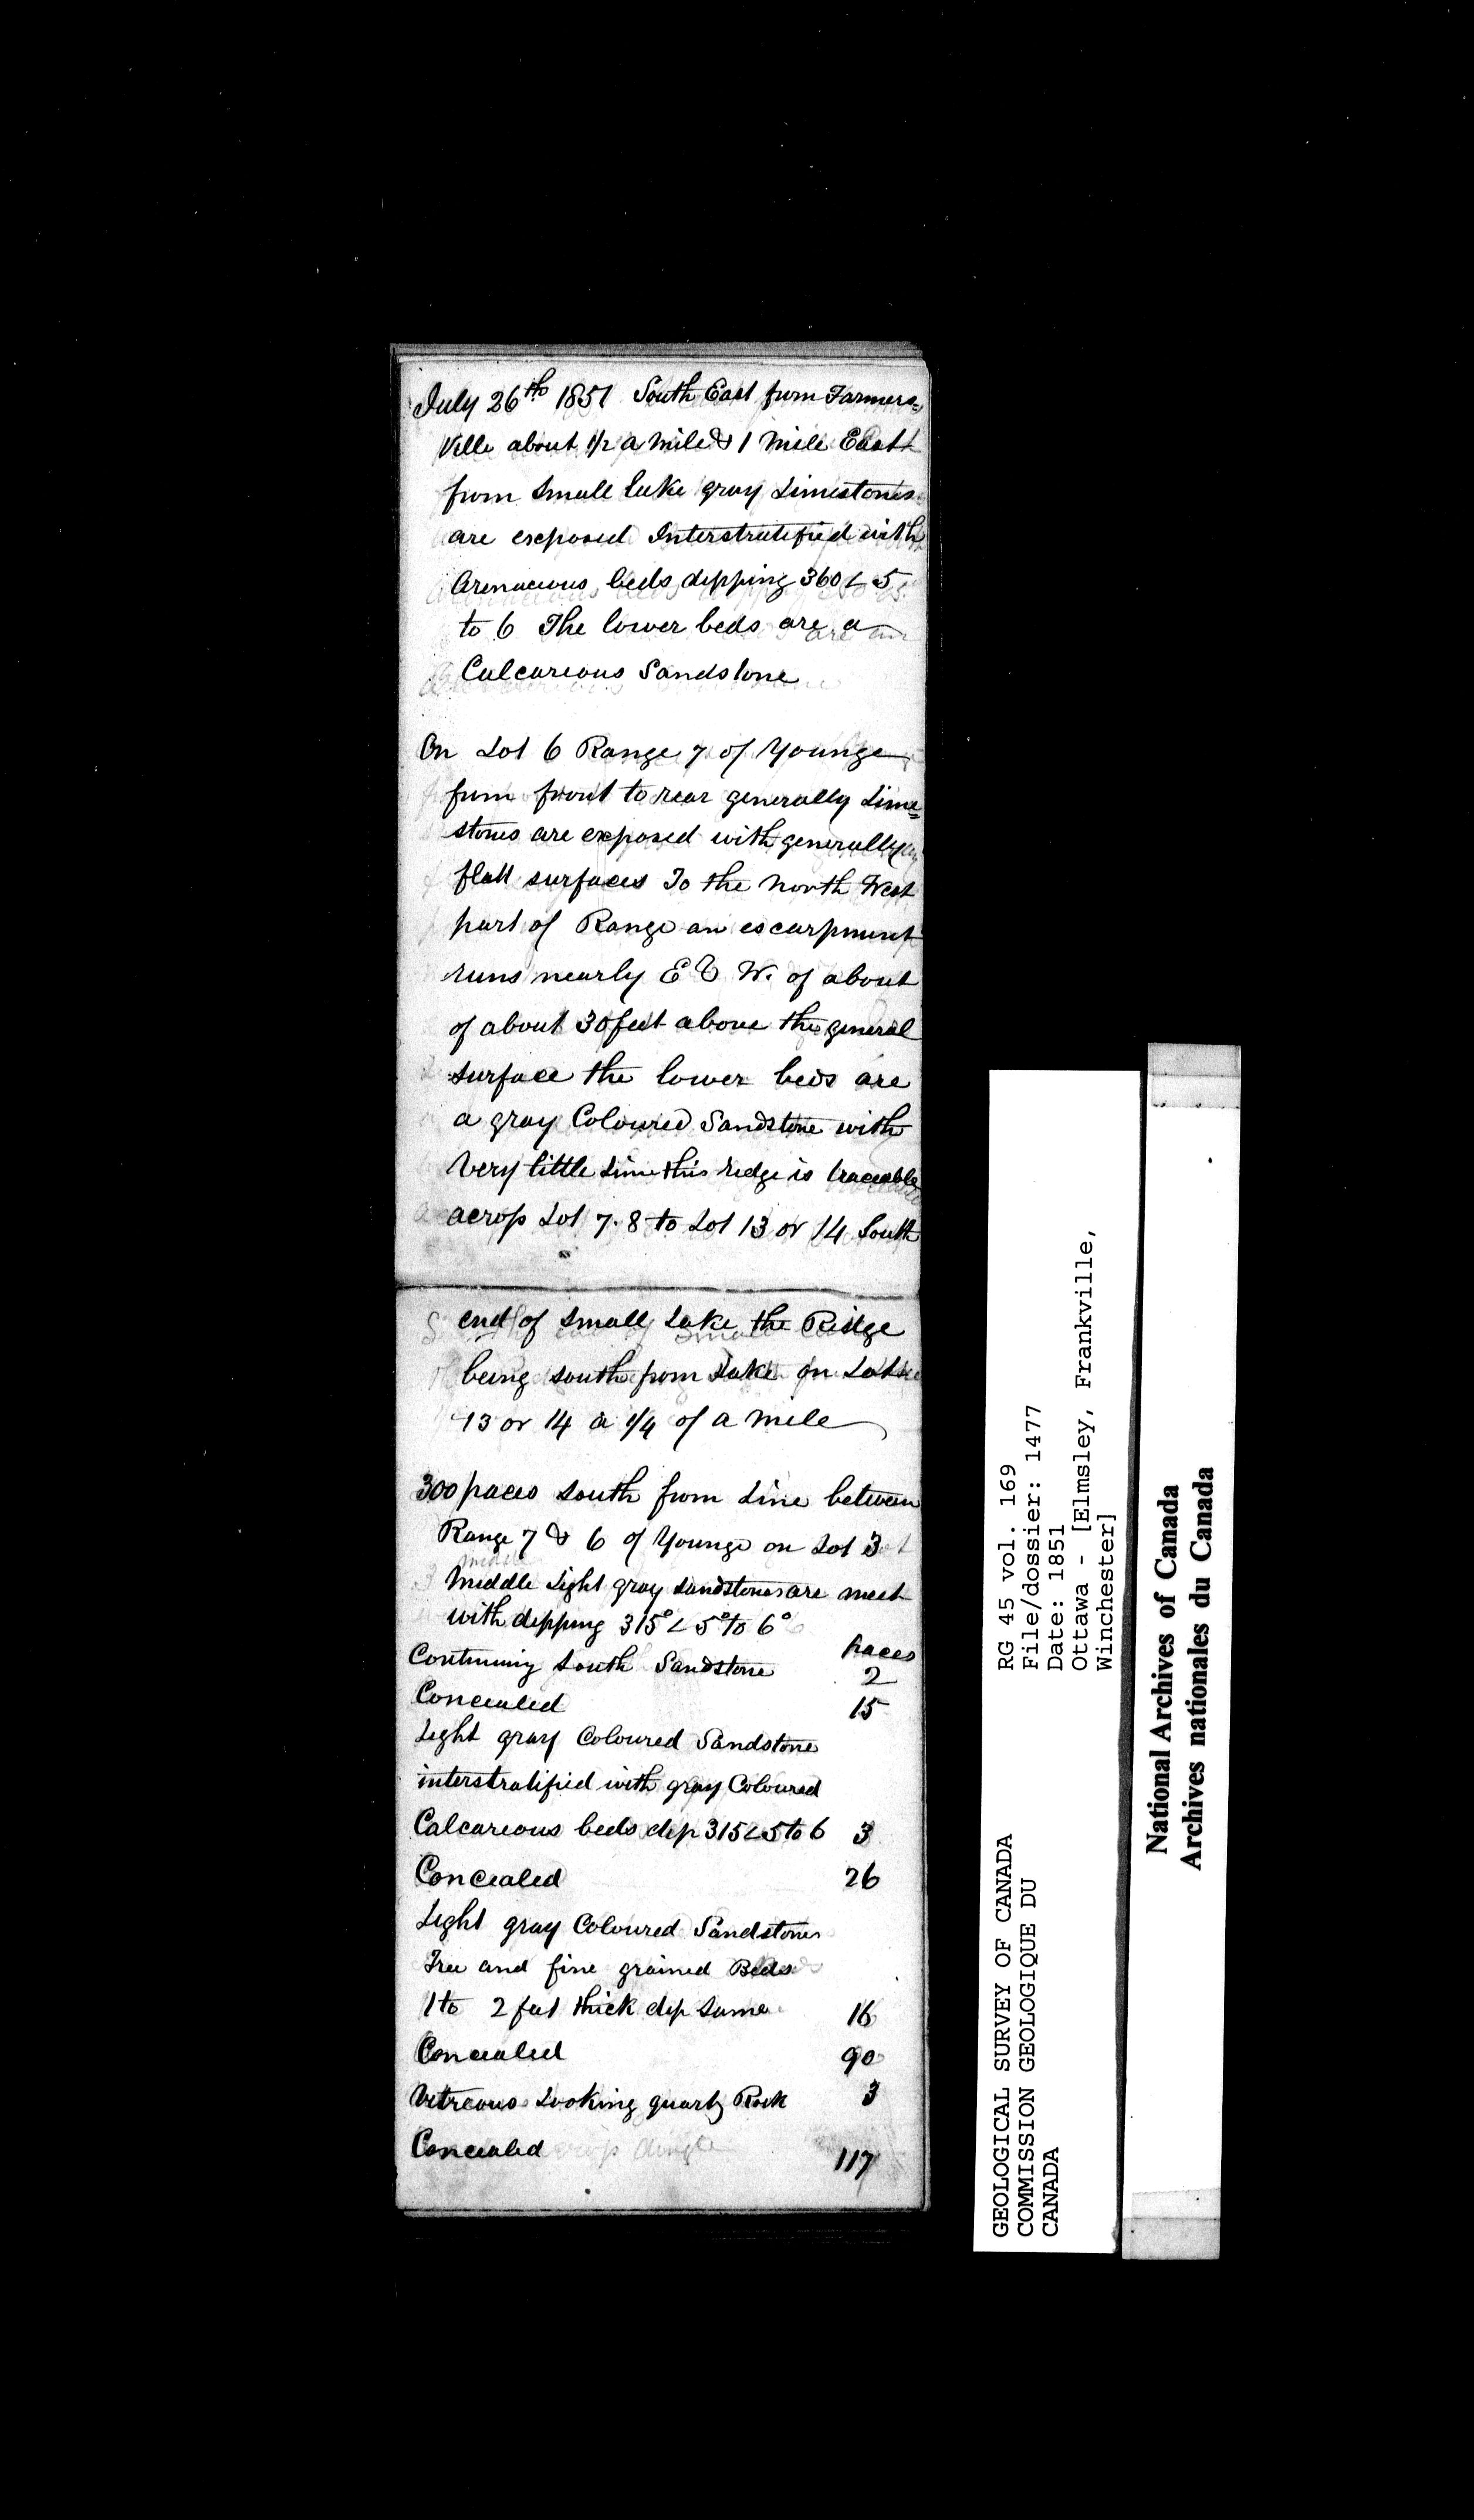 July 26th 1851 South East from Farmers=
Ville about 1/2 a mile & 1 Mile East
from Small lake gray Limestones
are exposed Interstratified with
Arenaceous beds dipping 360 < 5
to 6 The lower beds are a
Calcareous Sandstone
On Lot 6 Range 7 of Younge
from front to rear generally Lime=
stones are exposed with generally
flatt surfaces To the North West
part of Range an escarpment
runs nearly E & W. of about
of about 30 feet above the general
surface the lower beds are
a gray Coloured Sandstone with
Very little Lime this ridge is traceable
across Lot 7. 8 to Lot 13 or 14 South
end of Small Lake the Ridge
being south from Lake on Lots
13 or 14 a 1/4 of a mile
300 paces South from Line between
Range 7 & 6 of Younge on Lot 3
Middle Light gray Sandstones are meet
with dipping 315° < 5° to 6°
Paces
Continuing South Sandstone 2
Concealed 15
Light gray Coloured Sandstone
interstratified with gray Coloured
Calcareous beds dip 315 < 5 to 6 3
Concealed 26
Light gray Coloured Sandstones
Free and fine grained Beds
1 to 2 feet thick dip Same 16
Concealed 90
Vitreous Looking quartz Rock 3
Concealed 117
RG 45 vol. 169
File/dossier: 1477
Date: 1851
Ottawa - [Elmsley, Frankville,
Winchester]
GEOLOGICAL SURVEY OF CANADA
COMMISSION GEOLOGIQUE DU
CANADA
National Archives of Canada
Archives nationales du Canada